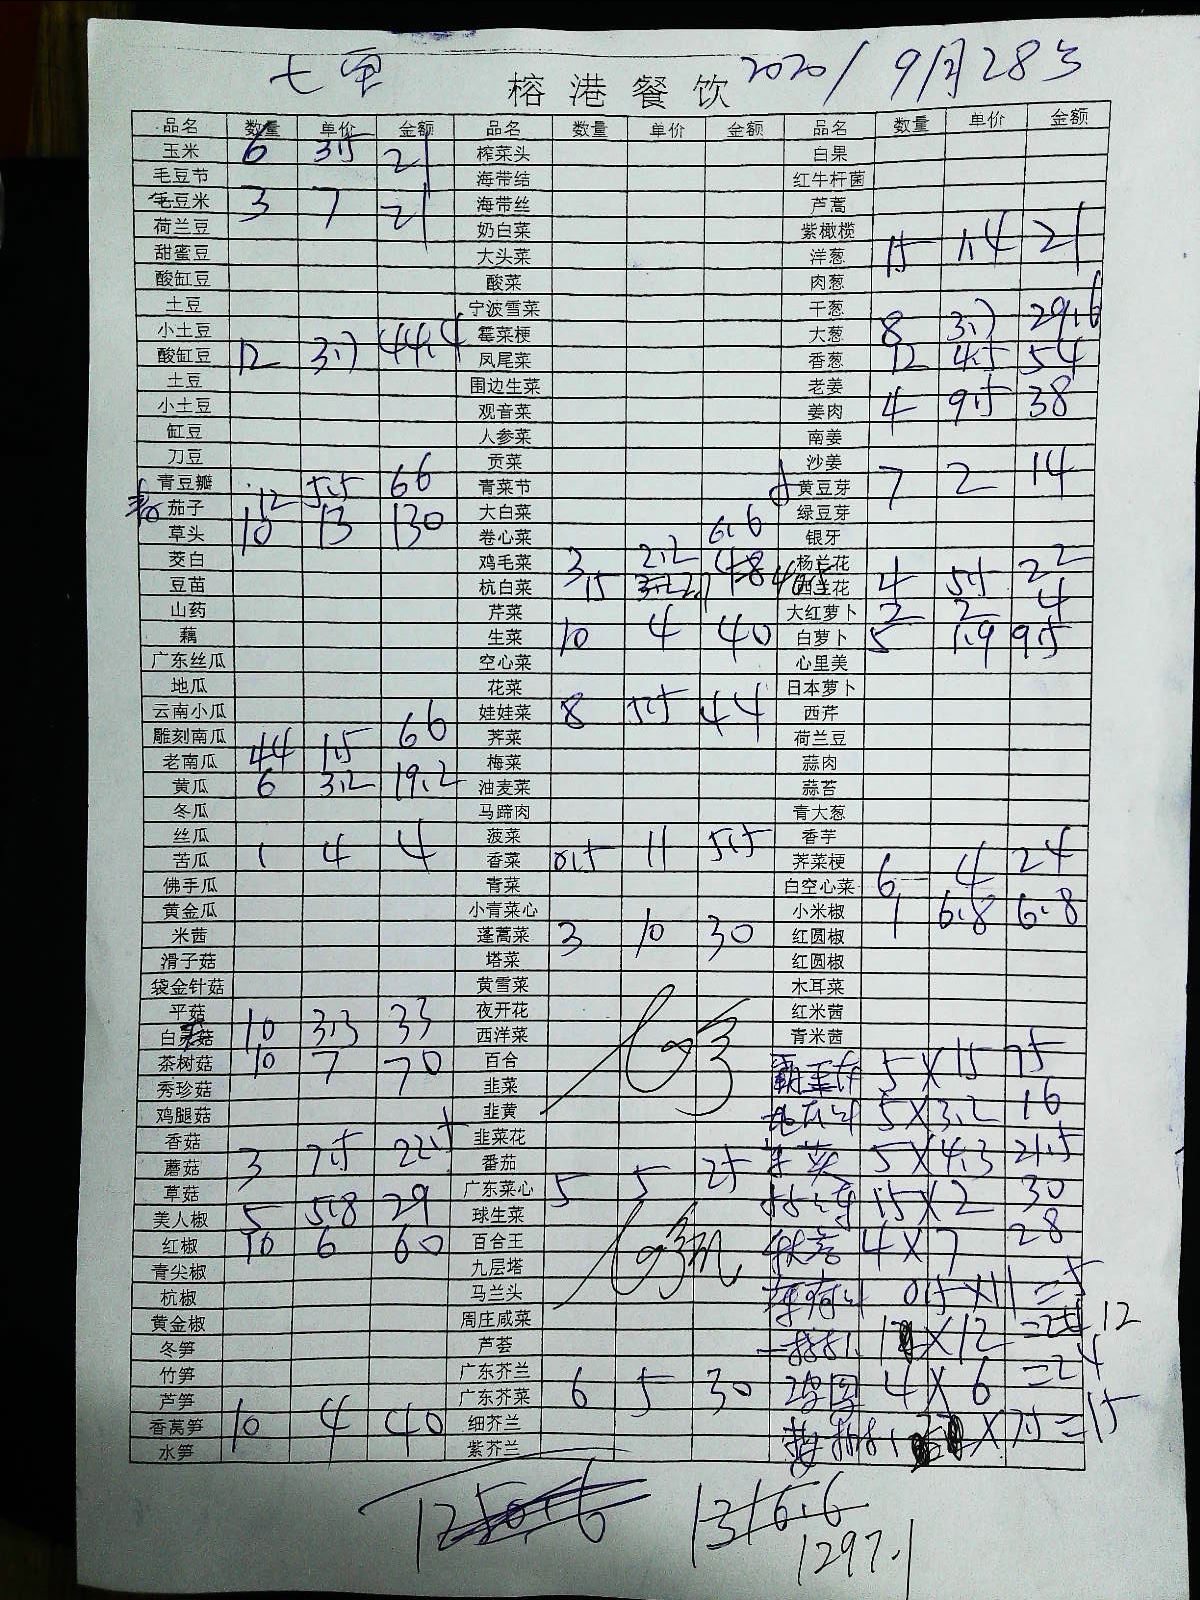 七 2020/9月28号
榕港餐饮
品名 数量 单价 金额 品名 数量 单价 金额 品名 数量 单价 金额
玉米 6 3.5 21 榨菜头 白果
毛豆节 海带结 红牛杆菌
毛豆米 3 7 21 海带丝 芦蒿
荷兰豆 奶白菜 紫橄榄
甜蜜豆 大头菜 洋葱 15 1.4 21
酸缸豆 酸菜 肉葱
土豆 宁波雪菜 干葱
小土豆 霉菜梗 大葱 8 3.7 29.6
酸缸豆 12 3.7 44.4 凤尾菜 香葱 12 4.5 54
土豆 围边生菜 老姜
小土豆 观音菜 姜肉 4 9.5 38
缸豆 人参菜 南姜
刀豆 贡菜 沙姜
青豆瓣 青菜节 黄豆芽 7 2 14
茄子 12 5.5 66 大白菜 绿豆芽
草头 10 13 130 卷心菜 银牙
茭白 鸡毛菜 3 2.2 6.6 杨兰花
豆苗 杭白菜 15 2.7 40.5 西兰花 4 5.5 22
山药 芹菜 大红萝卜 2 2 4
藕 生菜 10 4 40 白萝卜 5 1.9 9.5
广东丝瓜 空心菜 心里美
地瓜 花菜 日本萝卜
云南小瓜 娃娃菜 8 5.5 44 西芹
雕刻南瓜 荠菜 荷兰豆
老南瓜 44 1.5 66 梅菜 蒜肉
黄瓜 6 3.2 19.2 油麦菜 蒜苔
冬瓜 马蹄肉 青大葱
丝瓜 菠菜 香芋
苦瓜 1 4 4 香菜 0.5 11 5.5 荠菜梗
佛手瓜 青菜 白空心菜 6 4 24
黄金瓜 小青菜心 小米椒 1 6.8 6.8
米茜 蓬蒿菜 3 10 30 红圆椒
滑子菇 塔菜 红圆椒
袋金针菇 黄雪菜 木耳菜
平菇 夜开花 红米茜
白灵菇 10 3.3 33 西洋菜 青米茜
茶树菇 10 7 70 百合 5×15 75
秀珍菇 韭菜
鸡腿菇 韭黄 5×3.2 16
香菇 韭菜花
蘑菇 3 7.5 22.5 番茄 5×4.3 21.5
草菇 广东菜心 5 5 25 15×2 30
美人椒 5 5.8 29 球生菜
红椒 10 6 60 百合王 秋葵 4×7 28
青尖椒 九层塔
杭椒 马兰头 薄荷叶 0.5×11=5.5
黄金椒 周庄咸菜
冬笋 芦荟 ×12 12
竹笋 广东芥兰
芦笋 广东芥菜 6 5 30 4×6=24
香莴笋 10 4 40 细芥兰 ×7.5=15
水笋 紫芥兰
1250.6 1316.6
1297.1